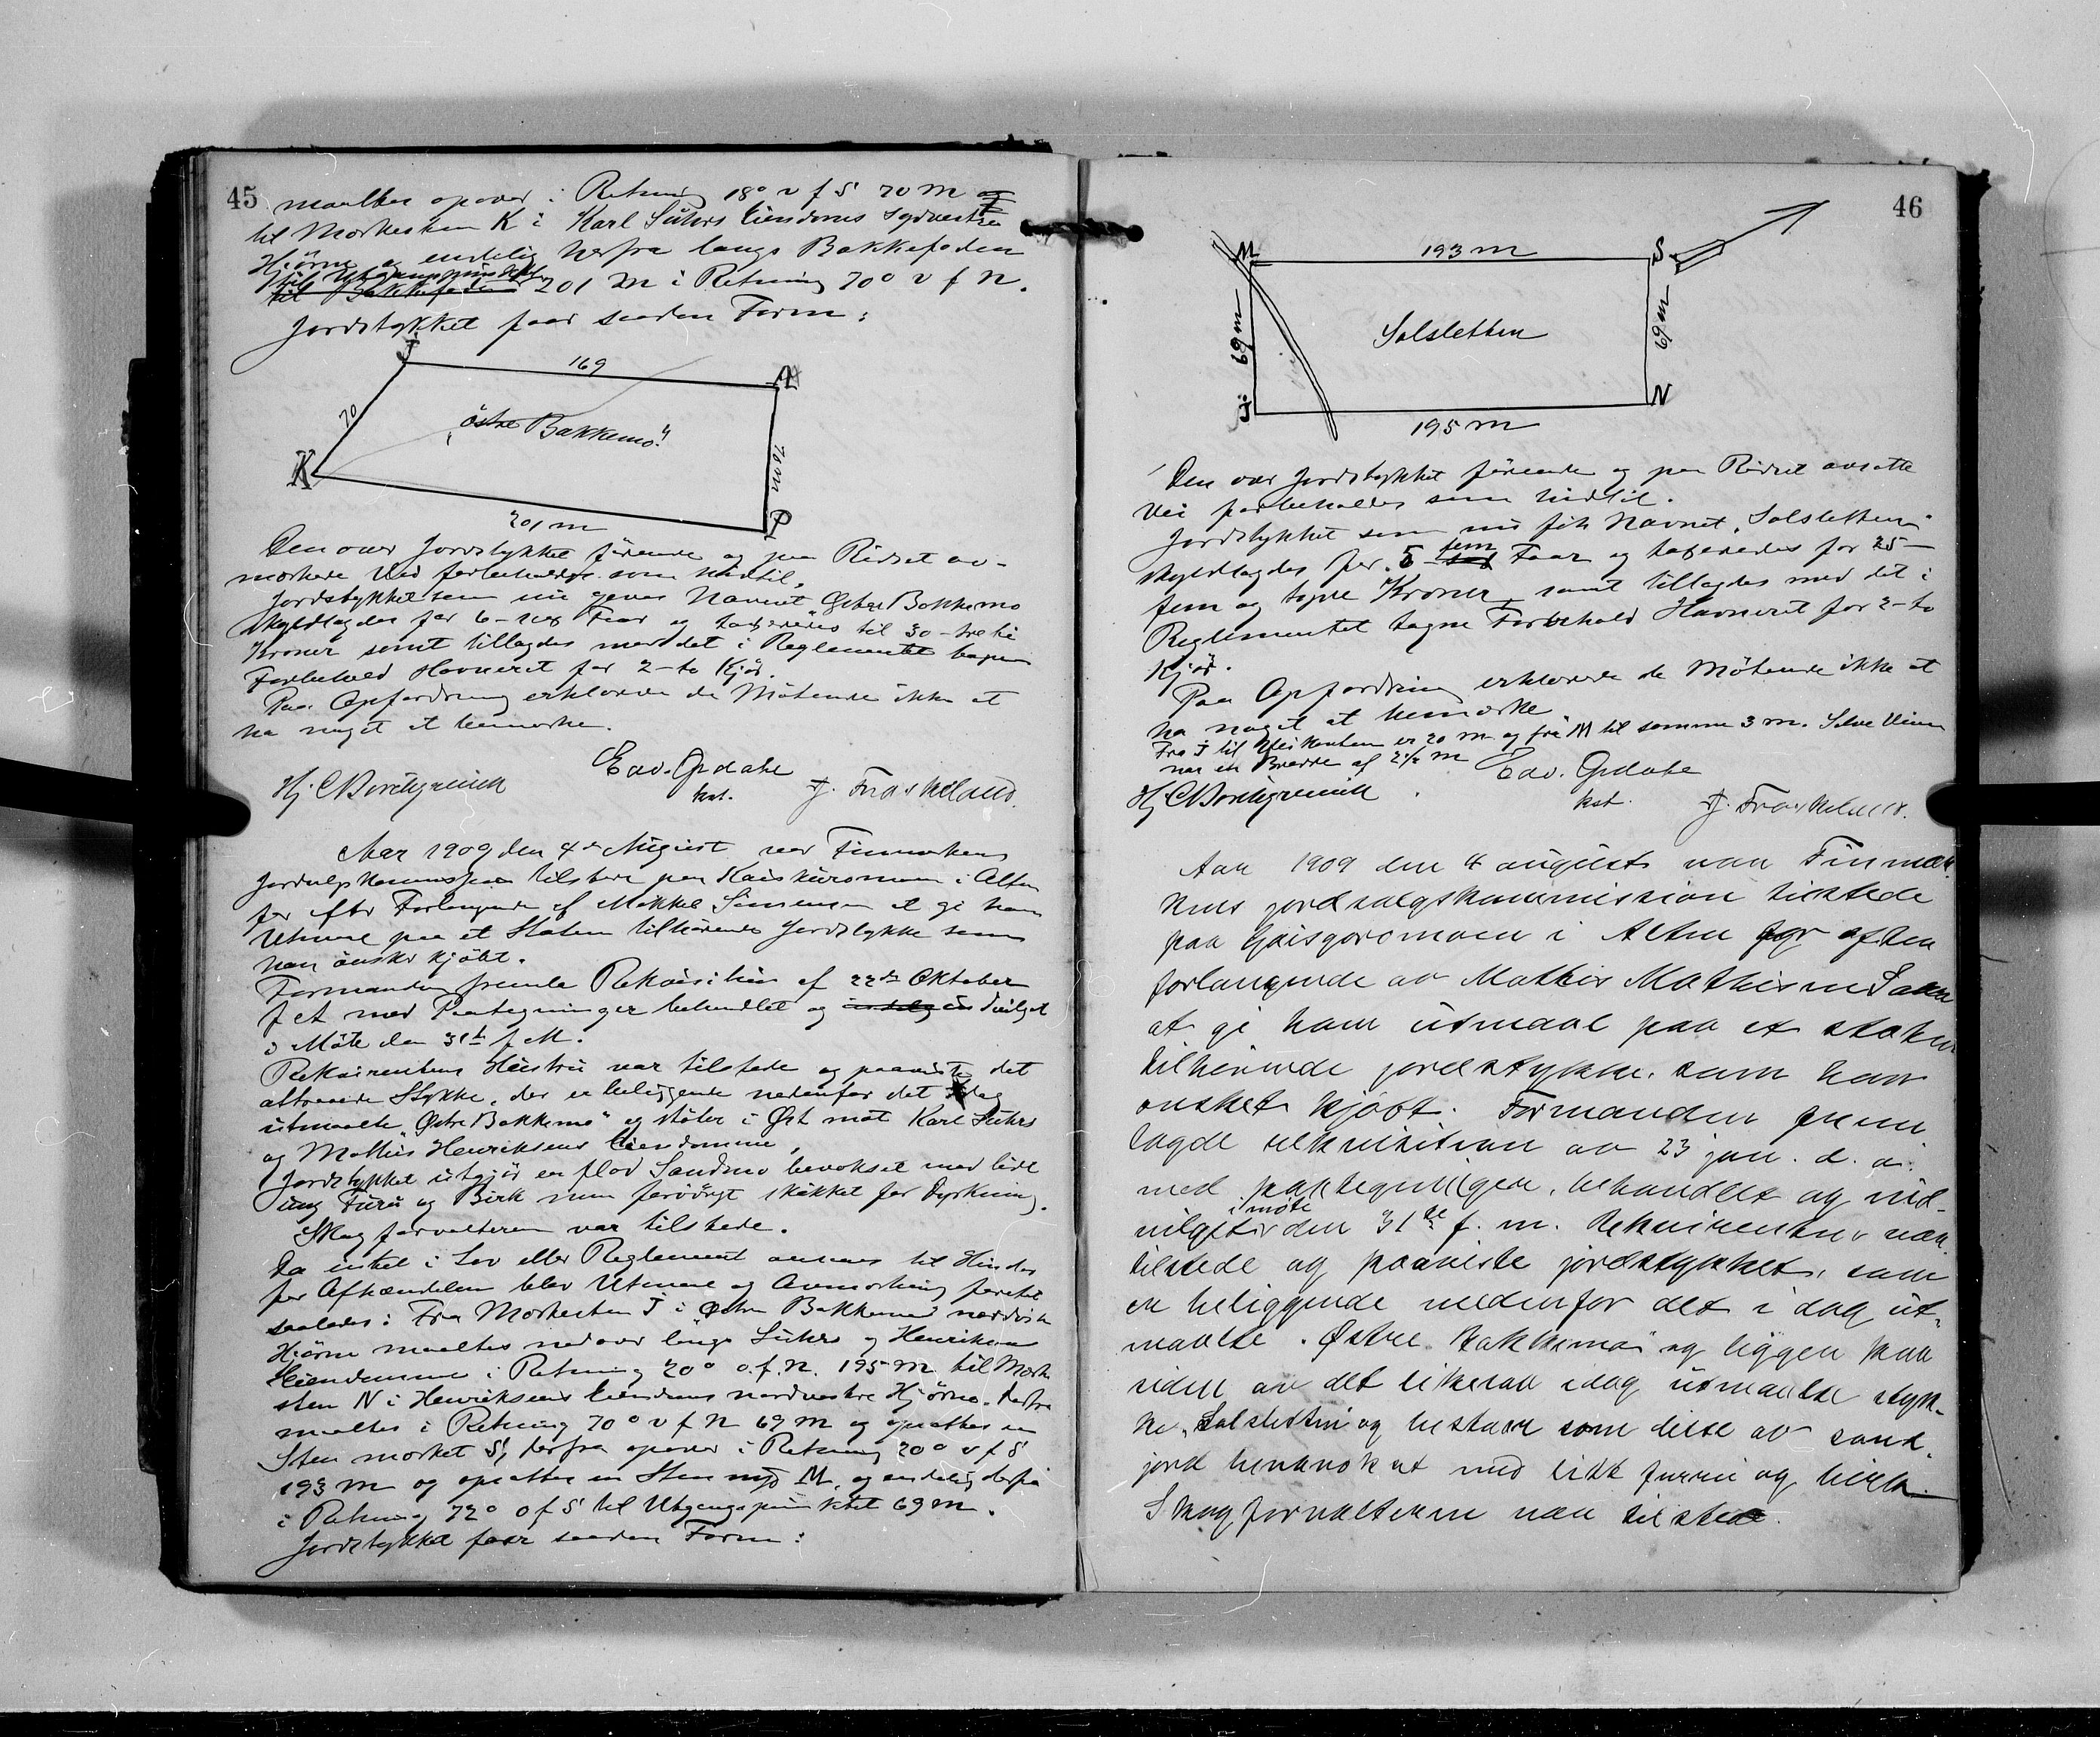 45
maaltes opover i Retning 18° v f S 70 m og
til Merkesten K i Karl Suhrs Eiendoms sydvestre
Hjörne og endelig herfra langs Bakkefoden
til Utgangspunktet
til Bakkefoden 201 m i Retning 70° v f N.
Jordstykket faar saadan Form:
J
169
70
70 m
„östre Bakkemo"
K
201 m
Den over Jordstykket förende og paa Ridset av-
merkede Vei forbeholdes som hidtil.
Jordstykket som nu gaves Navnet „Östre Bakkemo
skyldlagdes for 6 - sex Faar og taxeredes til 30 - tretti
Kroner samt tillagdes med det i Reglementet tagne
Forbehold Havneret for 2 - to Kjör.
Paa Opfordring erklærede de Mötende ikke at
ha noget at bemerke.
Edv. Opdahl
kst.
Hj. C Borchgrevink
J. Fraskeland.
Aar 1909 den 4de August var Finmarkens
Jordsalgskommission tilstede paa Kaiskuromoen i Alten
for efter Forlangende af Mikkel Simensen at gi ham
Utmaal paa et Staten tilhörende Jordstykke som
han önsker kjöbt.
Formanden fremla Rekvisition af 22de Oktober
f A med Paategninger behandlet og indvilget
i Möte den 31te f M.
Rekvirentens Hustru var tilstede og paaviste det
attraaede Stykke, der er beliggende nedenfor det idag
utmaalte „Östre Bakkemo" og stöter i Öst mot Karl Suhrs
og Mathis Henriksens Eiendomme,
Jordstykket utgjör en flad Sandmo bevokset med lidt
ung Furu og Birk men forövrigt skikket for Dyrkning.
Skogforvalteren var tilstede.
Da intet i Lov eller Reglement ansaaes til Hinder
for Afhændelsen blev Utmaal og Avmerking foretat
saaledes: Fra Merkesten J i Östre Bakkemos nordöstre
Hjörne maaltes nedover langs Suhrs og Henriksens
Eiendomme i Retning 20° o. f. N. 195 m til Merke
sten N i Henriksens Eiendoms nordvestre Hjörne. Derfra
maaltes i Retning 70° v f N 69 m og opsattes en
Sten merket S, derfra opover i Retning 20° v f S
193 m og opsattes en Sten mrk M, og endelig derfra
i Retning 72° o f S til Utgangspunktet 69 m.
Jordstykket faar saadan Form:
46
M
193 m
S
69 m
69 m
Solsletten
J
N
195 m
Den over Jordstykket förende og paa Ridset avsatte
Vei forbeholdes som hidtil.
Jordstykket som nu fik Navnet „Solsletten"
skyldlagdes for 5 - fem Faar og taxeredes for 25 -
fem og tyve Kroner, samt tillagdes med det i
Reglementet tagne Forbehold Havneret for 2 - to
Kjör.
Paa Opfordring erklærede de Mötende ikke at
ha noget at bemerke
Fra J til Veikanten er 20 m og fra M til samme 3 m. Selve Veien
har en Bredde af 2½ m
Edv. Opdahl
kst.
Hj. C Borchgrevink
J. Fraskeland.
Aar 1909 den 4 august var Finmar-
kens jordsalgskommission tilstede
paa Gaisgoromoen i Alten for efter
forlangende av Mathis Mathisen Sara
at gi ham utmaal paa et staten
tilhörende jordstykke, som han
önsket kjöbt. Formanden frem
lagde rekvisition av 23 jan. d. a.
med paategninger, behandlet og ind-
vilget i möte den 31te f. m. Rekvirenten var
tilstede og paaviste jordstykket, som
er beliggende nedenfor det i dag ut-
maalte „Östre Bakkemo" og ligger paa
siden av det likesaa idag utmaalte styk-
ke „Solsletten og bestaar som dette av sand-
jord bevokset med litt furru og birk.
Skogforvalteren var tilstede.